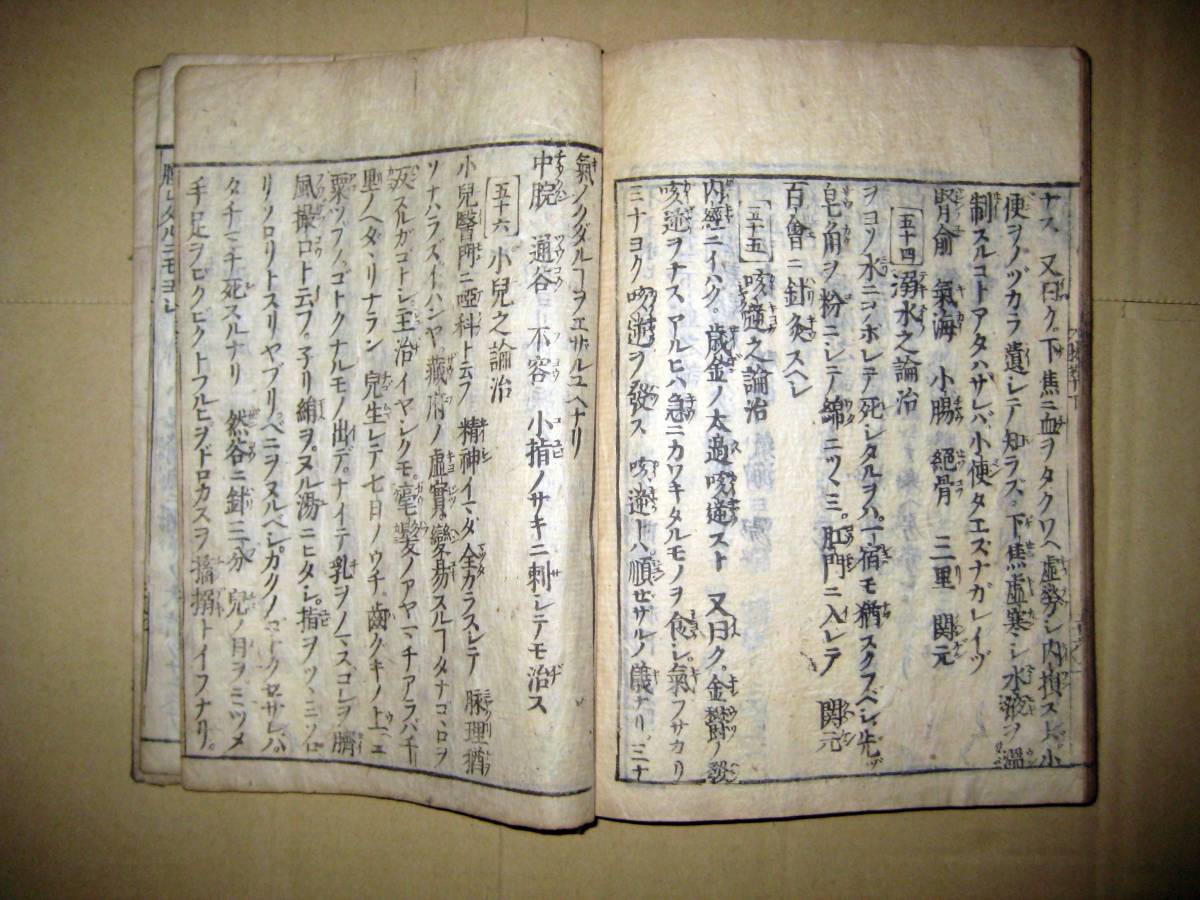 ナス 又曰ク。下焦ニ血ヲタクワヘ虚勞シ内損スレバ。小
便ヲノヅカラ遺シテ知ラズ。下焦虚寒シ水液ヲ温
制スルコトアタハザレバ、小便タエズナガレイヅ
腎俞 氣海 小腸 絕骨 三里 関元
五十四 溺水之論治
ヲヨソ水ニヲボレテ死シタルヲハ。一宿モ猶スクフベシ。先
皂角ヲ粉ニシテ綿ニツヽミ。肛門ニ入レテ 関元
百會ニ針灸スヘシ
五十五 咳逆之論治
内經ニイハク。歳金ノ太過咳逆スト 又曰ク。金欝ノ發
咳逆ヲナス アルヒハ急ニカワキタルモノヲ食シ。氣フサカリ
三ナヨク咳逆ヲ發ス 咳逆トハ順ゼザルノ儀ナリ。三ナ
氣ノクダルヿヲエザルユヘナリ
中脘 通谷 不容 小指ノサキニ刺シテモ治ス
五十六 小兒之論治
小兒醫門ニ啞科ト云フ 精神イマダ全カラスシテ 脉理猶
ソナハラズイハンヤ。藏府ノ虚實。變易スルヿタナゴヽロヲ
反スルガゴトシ。主治イヤシクモ。毫髮ノアヤマチアラバ千
里ノヘダヽリナラン 兒生レテ七日ノウチ。齒クキノ上ニ
粟ツブノゴトクナルモノ出デ。ナイテ乳ヲノマス。コレヲ臍
風撮口ト云フ。
リソロリトスリヤブリ。ベニヲヌルベシ。カクノゴトクセサレハ
タチマチ死スルナリ 然谷ニ針三分 兒ノ目ヲミツメ
手足ヲビクビクトフルヒヲドロカスヲ 搐搦トイフナリ。